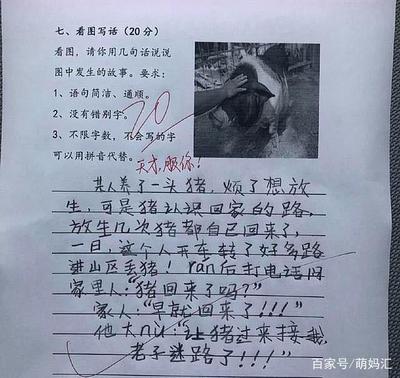 七、看图写话（20分）
看图，请你用几句话说说
图中发生的故事。要求：
1、语句简洁、通顺。
2、没有错别字。
3、不限字数，不会写的字
可以用拼音代替。
20
天才，服你！
某人养了一头猪，烦了想放
生，可是猪认识回家的路，
放生几次猪都自己回来了，
一日，这个人开车转了好多路
进山区丢猪！ran后打电话问
家里人：“猪回来了吗？”
家人：“早就回来了！！！”
他大nù：“让猪过来接我，
老子迷路了！！！”
百家号/萌妈汇